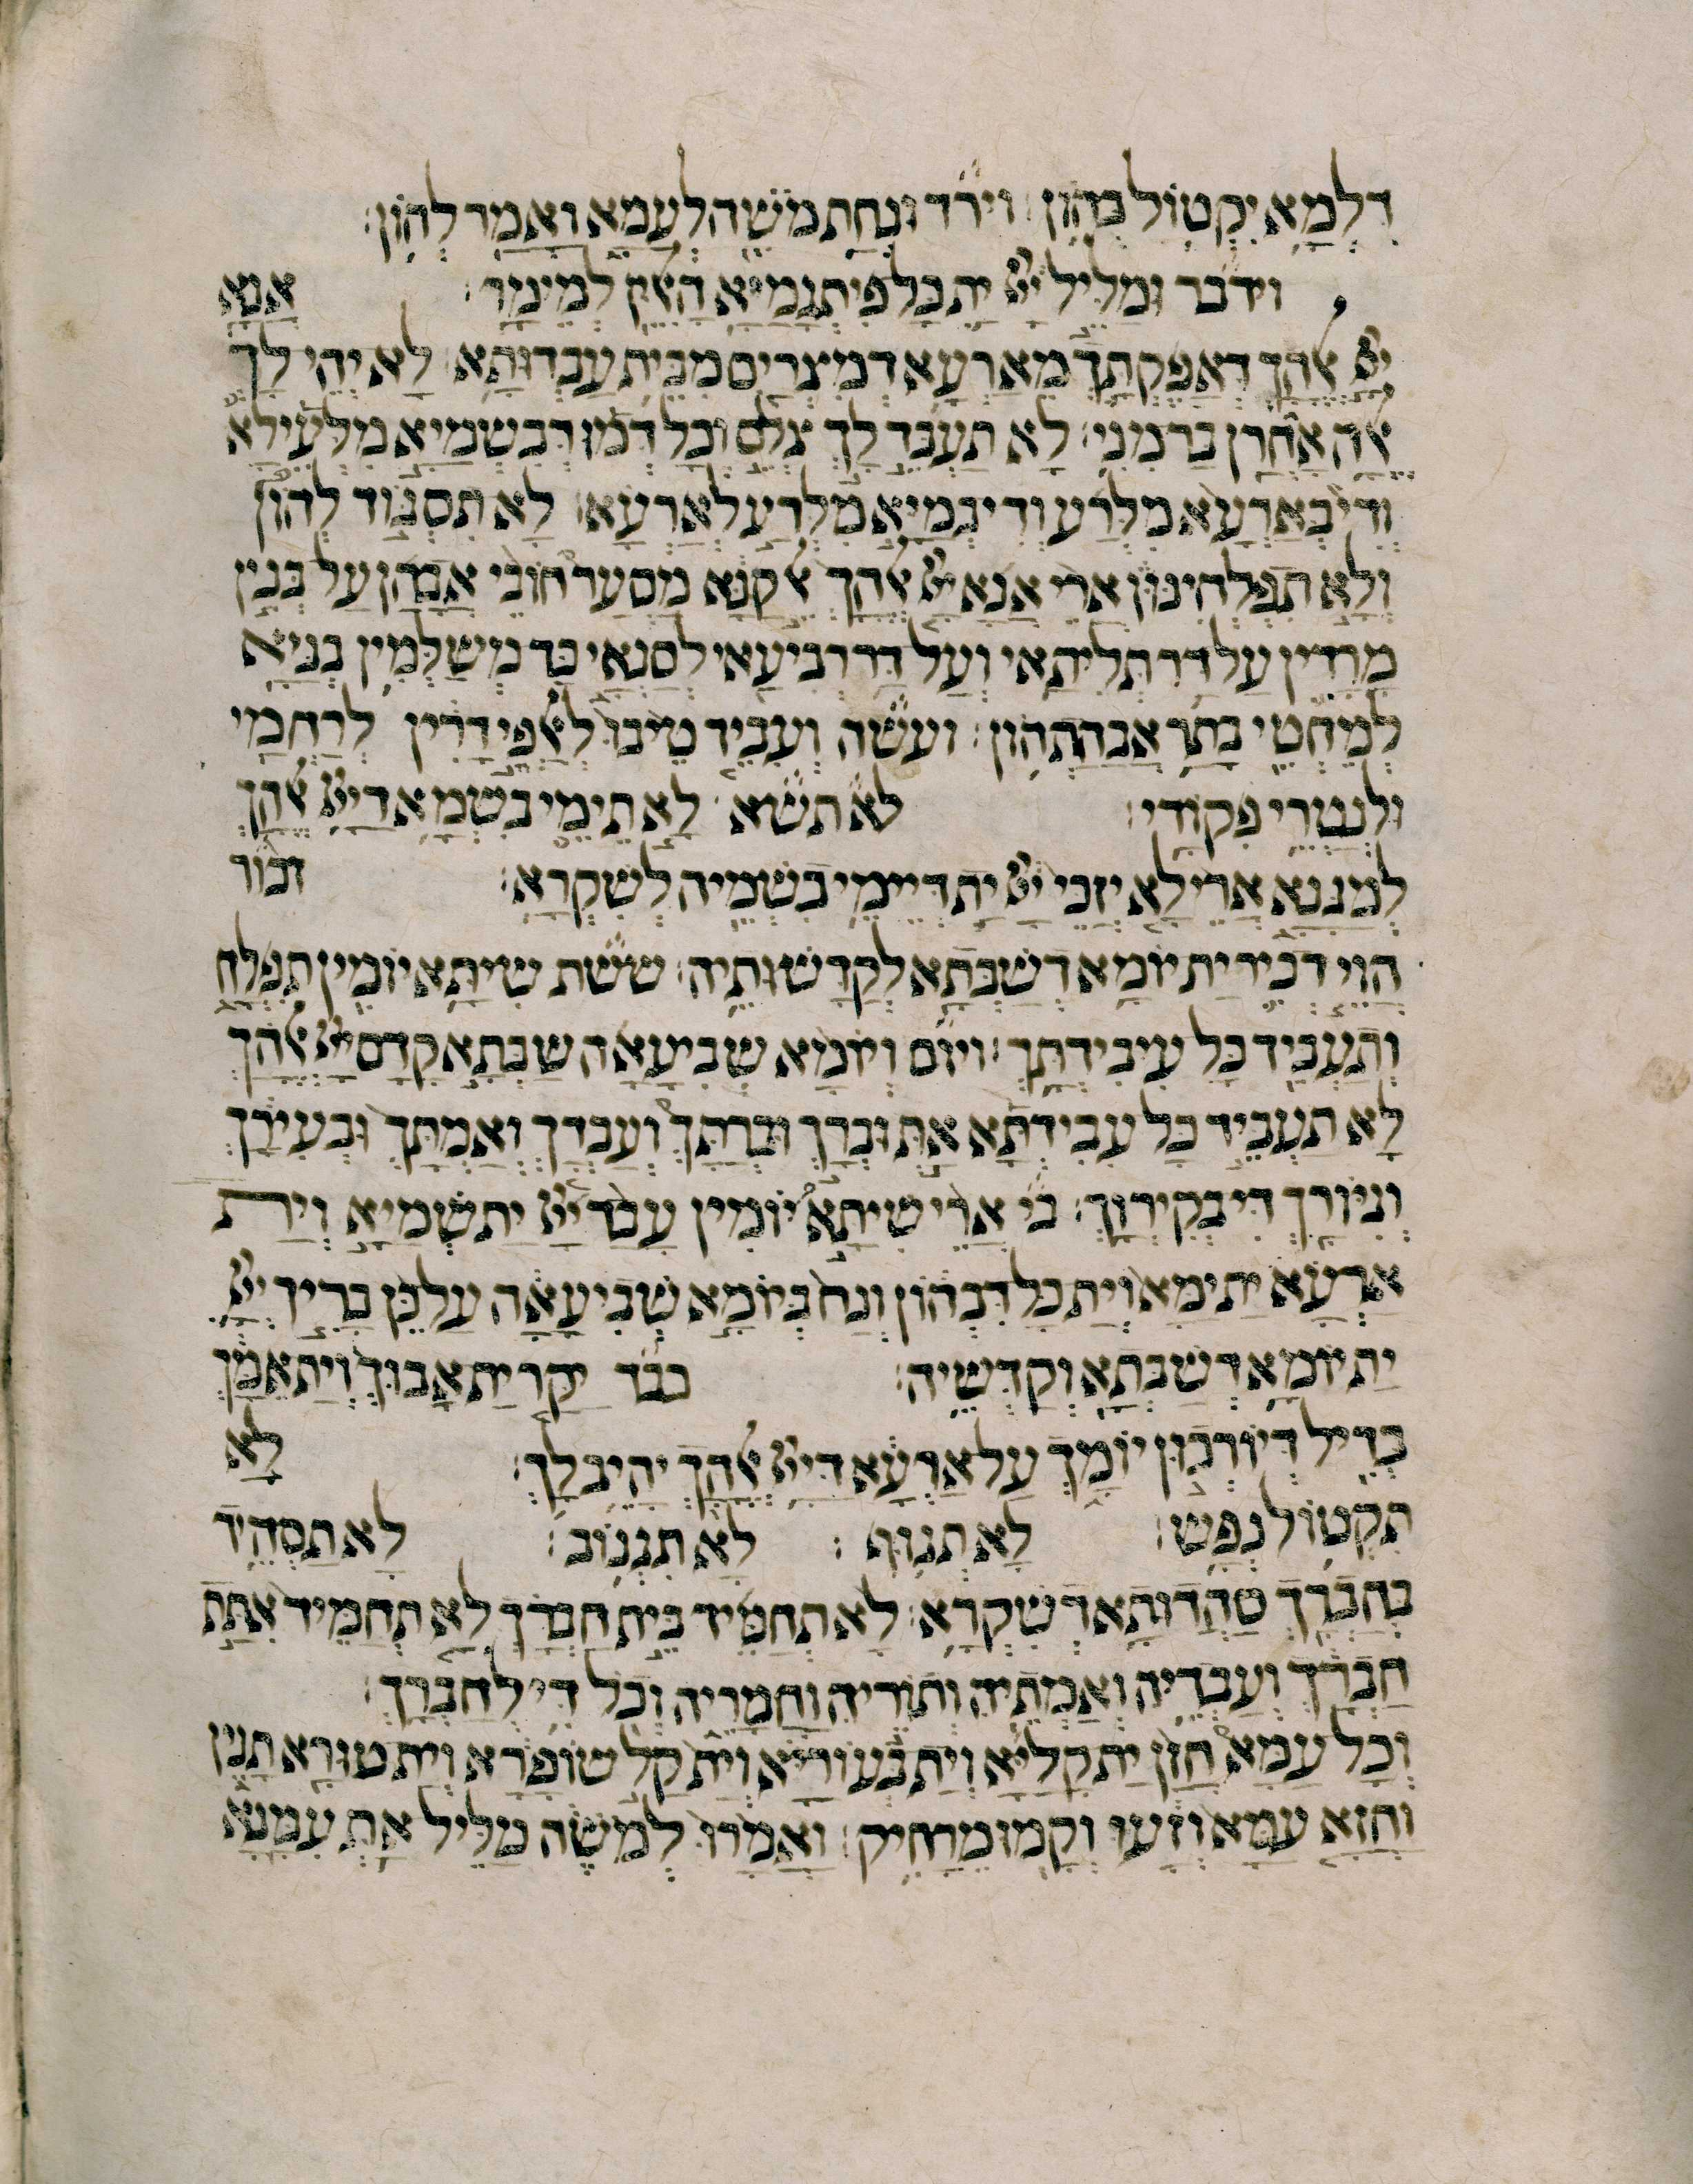 דלמא יקטול בהון: וירד ונחת משה לעמא ואמר להון:
וידבר ומליל יי ית כל פיתגמיא האלין למימר: אנא
יי אלהך דאפקתך מארעא דמצרים מבית עבדותא: לא יהי לך
אלה אחרן בר מני: לא תעבד לך צלם וכל דמו דבשמיא מלעילא
ודי בארעא מלרע ודי במיא מלרע לארעא: לא תסגוד להון
ולא תפלחינון ארי אנא יי אלהך אל קנא מסער חובי אבהן על בנין
מרדין על דר תליתאי ועל דר רביעאי לסנאי כד משלמין בניא
למחטי בתר אבהתהון: ועשה ועביד טיבו לאלפי דרין לרחמי
ולנטרי פקודי: לא תשא לא תימי בשמא דיי אלהך
למגנא ארי לא יזכי יי ית דיימי בשמיה לשקרא: זכור
הוי דכיר ית יומא דשבתא לקדשותיה: ששת שיתא יומין תפלח
ותעביד כל עיבידתך: ויום ויומא שביעאה שבתא קדם יי אלהך
לא תעביד כל עבידתא את וברך וברתך ועבדך ואמתך ובעירך
וגיורך די בקירוך: כי ארי שיתא יומין עבד יי ית שמיא וית
ארעא ית ימא וית כל דבהון ונח ביומא שביעאה על כן בריך יי
ית יומא דשבתא וקדשיה: כבד יקר ית אבוך וית אמך
בדיל דיורכון יומך על ארעא דיי אלהך יהיב לך: לא
תקטול נפש: לא תגוף: לא תגנוב: לא תסהיד
בחברך סהדותא דשקרא: לא תחמיד בית חברך לא תחמיד אתת
חברך ועבדיה ואמתיה ותוריה וחמריה וכל די לחברך:
וכל עמא חזן ית קליא וית בעוריא וית קל שופרא וית טורא תנין
וחזא עמא וזעו וקמו מרחיק: ואמרו למשה מליל את עמנא